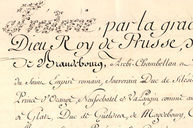 Frederic, par la grace
Dieu Roy de Prusse,
de Brandebourg, Archi-Chambellan
du Saint Empire romain, Souverain Duc de Silesie
Prince d'Orange, Neufchatel et Valangin comme
Glatz, Duc de Gueldres, de Magdebourg,